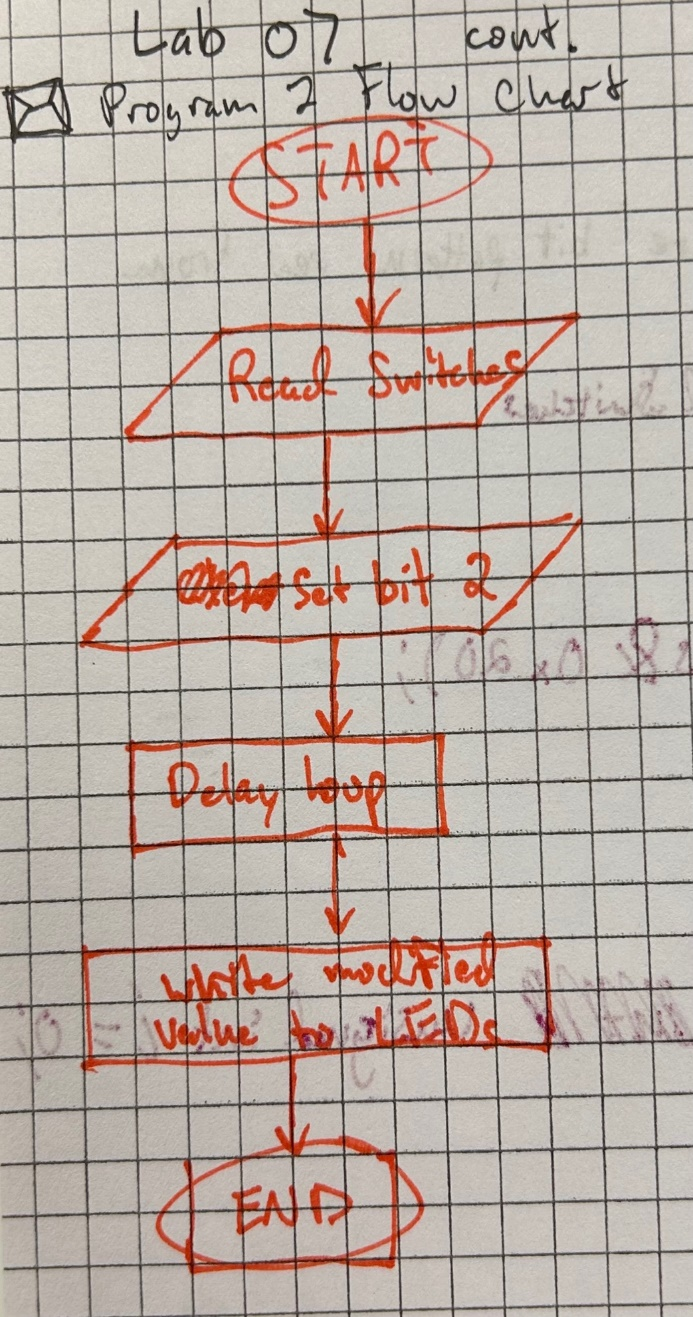 Lab 07 cont.
Program 2 Flow Chart
START
Read Switches
set bit 2
Delay loop
write modified
value to LEDs
END